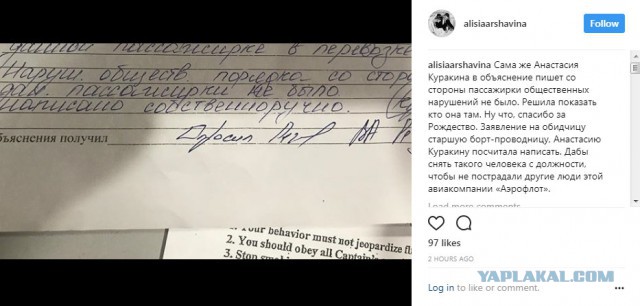 данной пассажирке в перевозке
Наруш. обществ. порядка со стор
дан. пассажирки не было.
Написано собственноручно.
бъяснения получил
1. Your behavior must not jeopardize fl
2. You should obey all Captain
3. Stop
alisiaarshavina
Follow
alisiaarshavina Сама же Анастасия
Куракина в объяснение пишет со
стороны пассажирки общественных
нарушений не было. Решила показать
кто она там. Ну что, спасибо за
Рождество. Заявление на обидчицу
старшую борт-проводницу. Анастасию
Куракину посчитала написать. Дабы
снять такого человека с должности,
чтобы не пострадали другие люди этой
авиакомпании «Аэрофлот».
Load more comments
97 likes
2 HOURS AGO
Log in to like or comment.
YAPLAKAL.COM